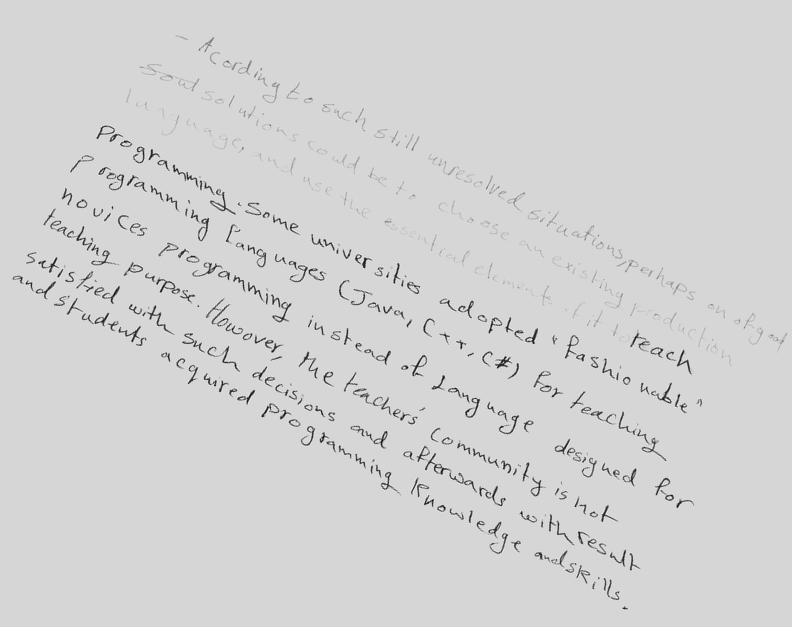 - Acording to such still unresolved situations, perhaps on of goat
solutions could be to choose an existing production
language, and use the essential elements of it to teach
programming. Some universities adopted "fashionable"
programming languages (Java, C++, C#) for teaching
novices programming instead of Language designed for
teaching purpose. However, the teachers' community is not
satisfied with such decisions and afterwards with result
and students acquired programming knowledge and skills.